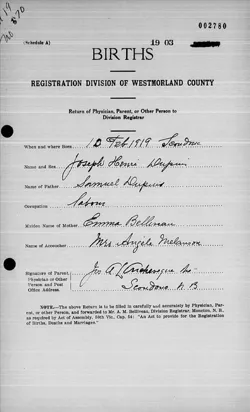 002780
(Schedule A)
19 03
BIRTHS
REGISTRATION DIVISION OF WESTMORLAND COUNTY
Return of Physician, Parent, or Other Person to
Division Registrar
When and where Born, 10 Feb 1919 Scoudouc
Name and Sex Joseph Henri Dupuis
Name of Father Samuel Dupuis
Occupation labour
Maiden Name of Mother Emma Belliveau
Name of Accoucher Mrs Angele Melanson
Signature of Parent,
Physician or Other
Person and Post
Office Address
Scoudouc N B
NOTE.—The above Return is to be filled in carefully and accurately by Physician, Parent,
or other person, and forwarded to Mr. A. M. Belliveau, Division Registrar, Moncton, N. B.,
as required by Act of Assembly, 50th Vic., Cap. 54: "An Act to provide for the Registration
of Births, Deaths and Marriages."